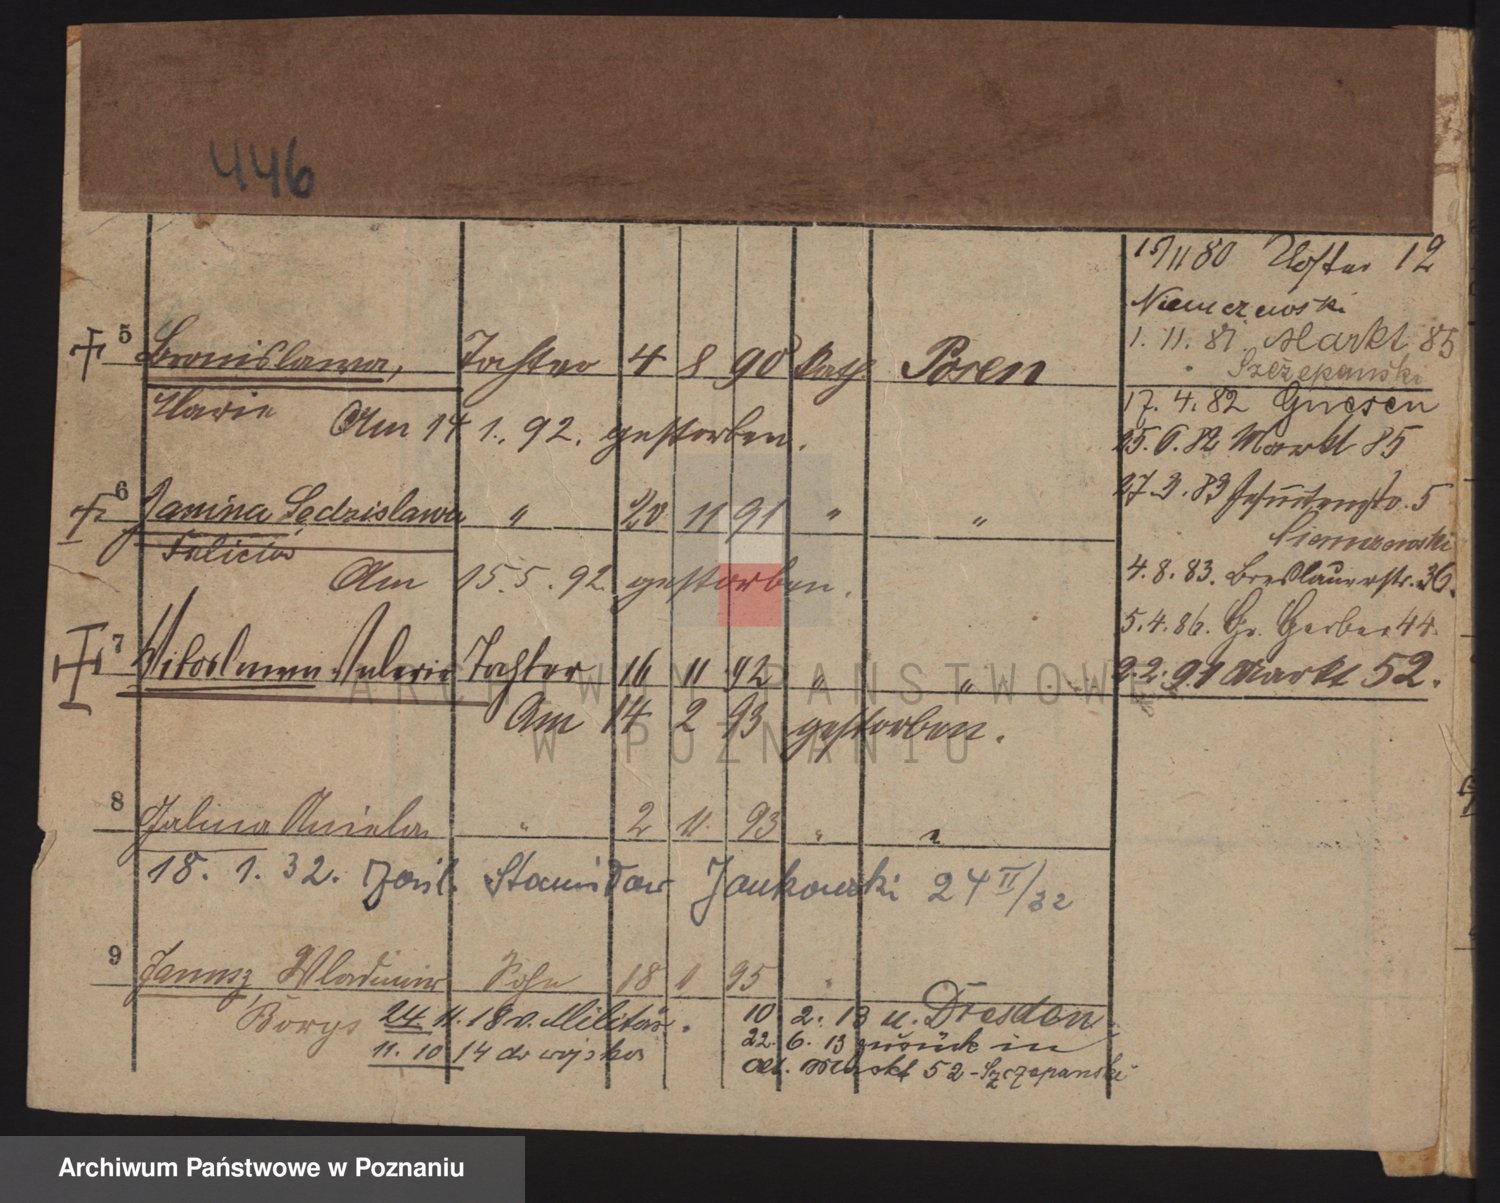 446
5 Bronisława, Tochter 4 8 90 kath. Posen
Marie Am 14 1. 92. gestorben.
6 Janina Sedzisława " 20 11 91 " "
Felicia
Am 15. 5. 92 gestorben.
7 Valerie Tochter 16 11 92 " "
Am 14 2 93 gestorben.
8 Halina Aniela " 2 11. 93 " "
18. 1. 32. Stanisław Jankowski 24 II/32
9 Janusz Wladimir Sohn 18 1 95 "
Borys 24 11. 18 v. Militär.
11. 10 14 do wojska
10. 2. 13 n. Dresden
22. 6. 13 zurück in
Alt. Markt 52 - Szczepanski
15/11 80 Kloster 12
Niemczewski
1. 11. 81 Markt 85
Szczepanski
17. 4. 82 Gnesen
25. 6. 82 Markt 85
27. 3. 83 5
4. 8. 83. Breslauerstr. 36.
5. 4. 86. Gr. Gerber 44.
2. 2. 91 Markt 52.
ARCHIWUM PAŃSTWOWE
W POZNANIU
Archiwum Państwowe w Poznaniu